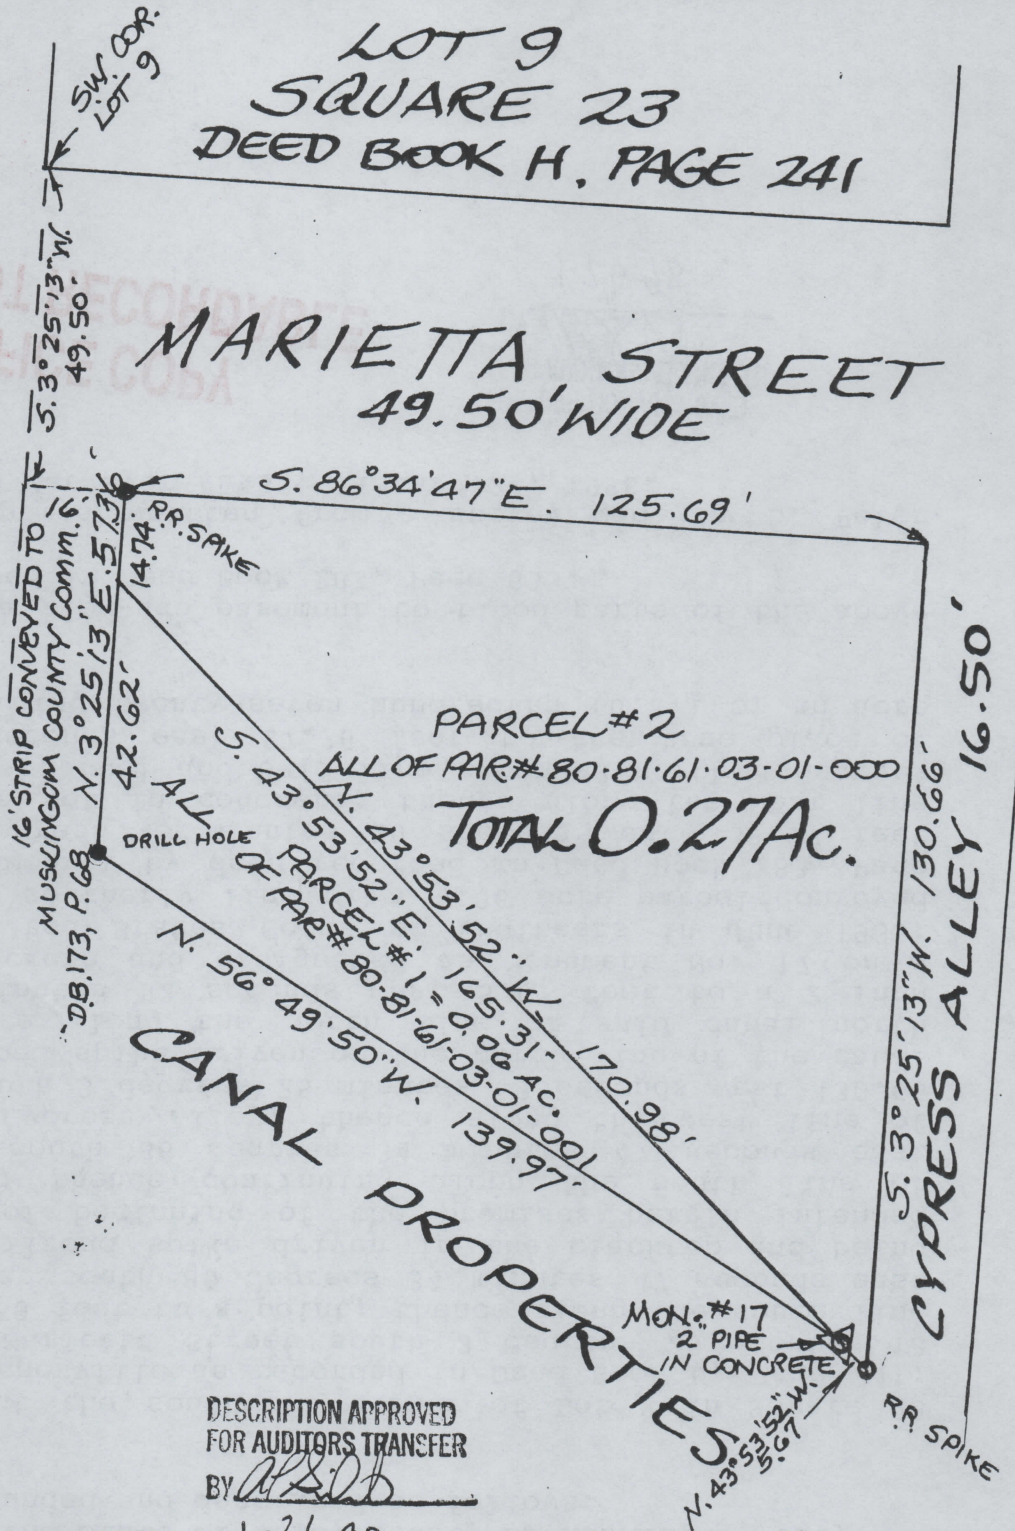 S.W. COR.
LOT 9
LOT 9
SQUARE 23
DEED BOOK H, PAGE 241
S. 3° 25' 13" W.
49.50'
MARIETTA STREET
49.50' WIDE
S. 86° 34' 47" E. 125.69'
16'
R.R. SPIKE
16' STRIP CONVEYED TO
MUSKINGUM COUNTY COMM.
D.B. 173, P. 68
N. 3° 25' 13" E. 57.36'
14.74'
42.62'
DRILL HOLE
PARCEL # 2
ALL OF PAR.# 80-81-61-03-01-000
TOTAL 0.27 Ac.
N. 43° 53' 52" W. 170.98'
S. 43° 53' 52" E. 165.31'
PARCEL # 1 = 0.06 AC.
ALL OF PAR# 80-81-61-03-01-001
N. 56° 49' 50" W. 139.97'
CANAL PROPERTIES
S. 3° 25' 13" W. 130.66'
CYPRESS ALLEY 16.50'
MON. #17
2" PIPE
IN CONCRETE
N. 43° 53' 52" W.
5.67'
R.R. SPIKE
DESCRIPTION APPROVED
FOR AUDITORS TRANSFER
BY